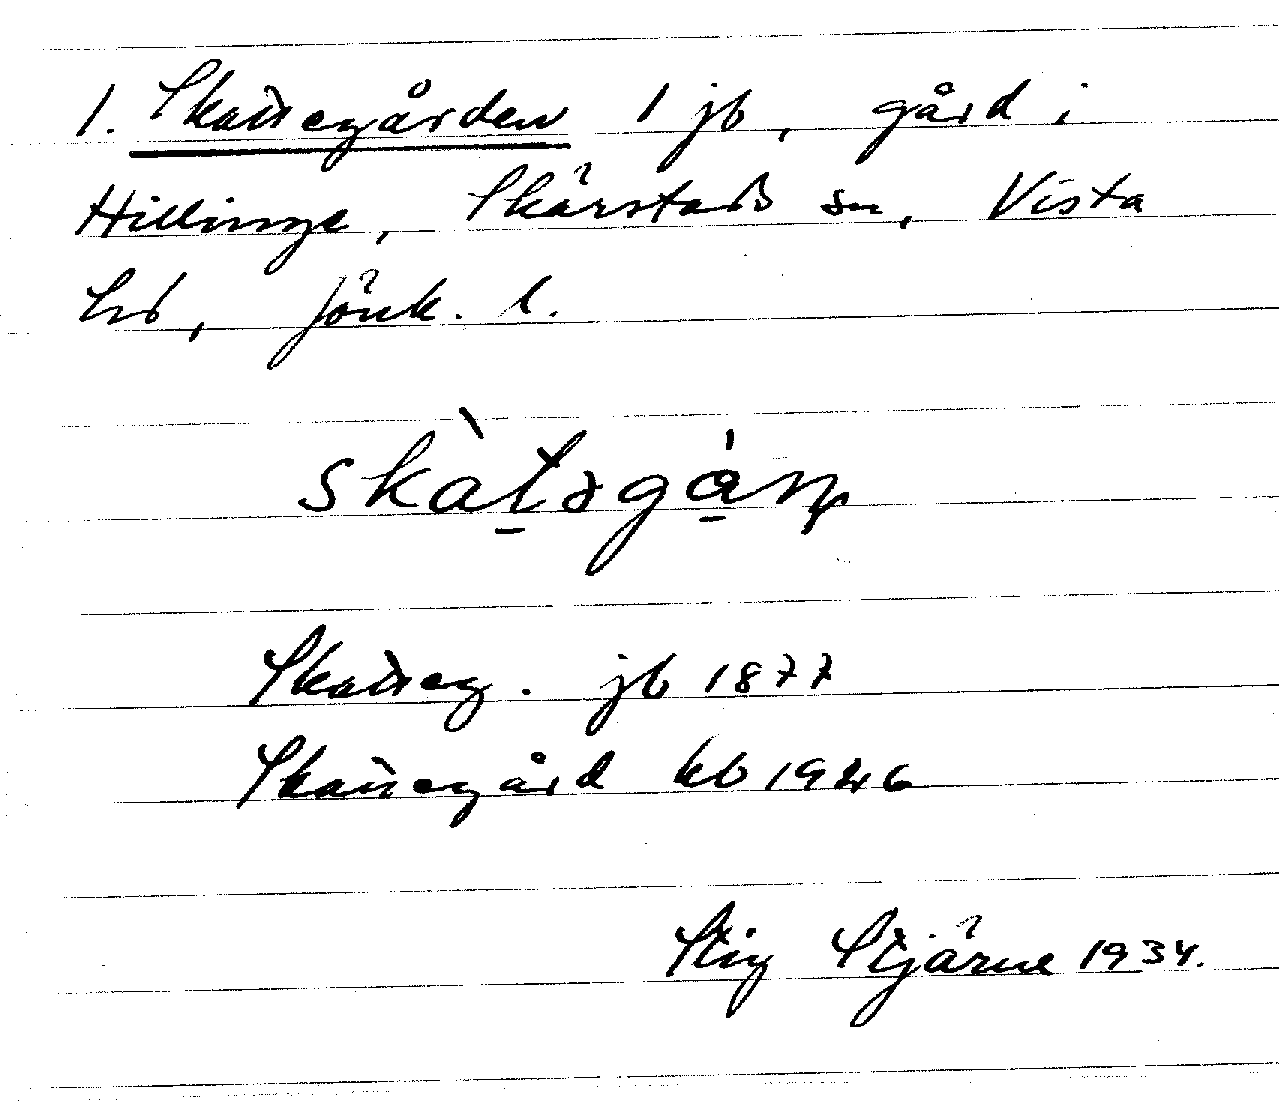 1. Skattegården 1 jb, gård i
Hillinge, Skärstads sn, Vista
hd, Jönk. l.
skàtəgá̱rn̥
Skatteg. jb 1877
Skattegård kb 1946
Stig Stjärne 1934.